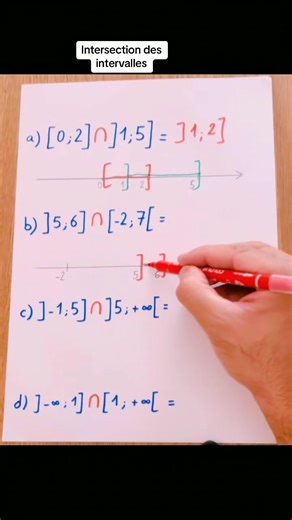 Intersection des
intervalles
a) [0;2]∩]1;5] = ]1;2]
0 1 2 5
b) ]5;6]∩[-2;7[ =
-2 5 6
c) ]-1;5]∩]5;+∞[ =
d) ]-∞;1]∩[1;+∞[ =